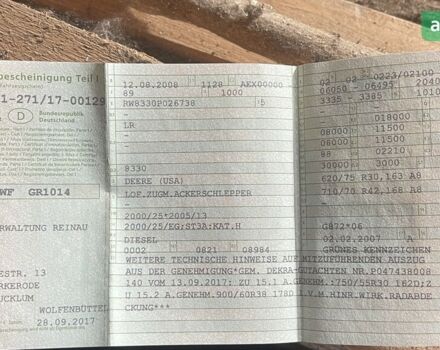 bescheinigung Teil I
1-271/17-00129
D
Bundesrepublik
Deutschland
WF GR1014
RWALTUNG REINAU
ESTR. 13
RKERODE
UCKLUM
WOLFENBÜTTEL
28.09.2017
12.08.2008 1128 AEX00000
89 1000
RW8330P026738 5
LR
-
-
8330
DEERE (USA)
LOF.ZUGM.ACKERSCHLEPPER
2000/25*2005/13
2000/25/EG;ST3A:KAT.H
DIESEL
0002 0821 08984
02 02 0223/02100
06050 - 06495 2040
3335 - 3385 1010
018000
08000 11500
08000 11500
88 02210
30000 3000
620/75 R30,163 A8
710/70 R42,168 A8
-
G872*06
02.02.2007 A
GRÜNES KENNZEICHEN
WEITERE TECHNISCHE HINWEISE AUF MITZUFÜHRENDEN AUSZUG
AUS DER GENEHMIGUNG*GEM. DEKRA-GUTACHTEN NR.P047438008
140 VOM 13.09.2017: ZU 15.1 A.GENEHM.:750/55R30 162D;Z
U 15.2 A.GENEHM.900/60R38 178D I.V.M.HINR.WIRK.RADABDE
CKUNG***
a